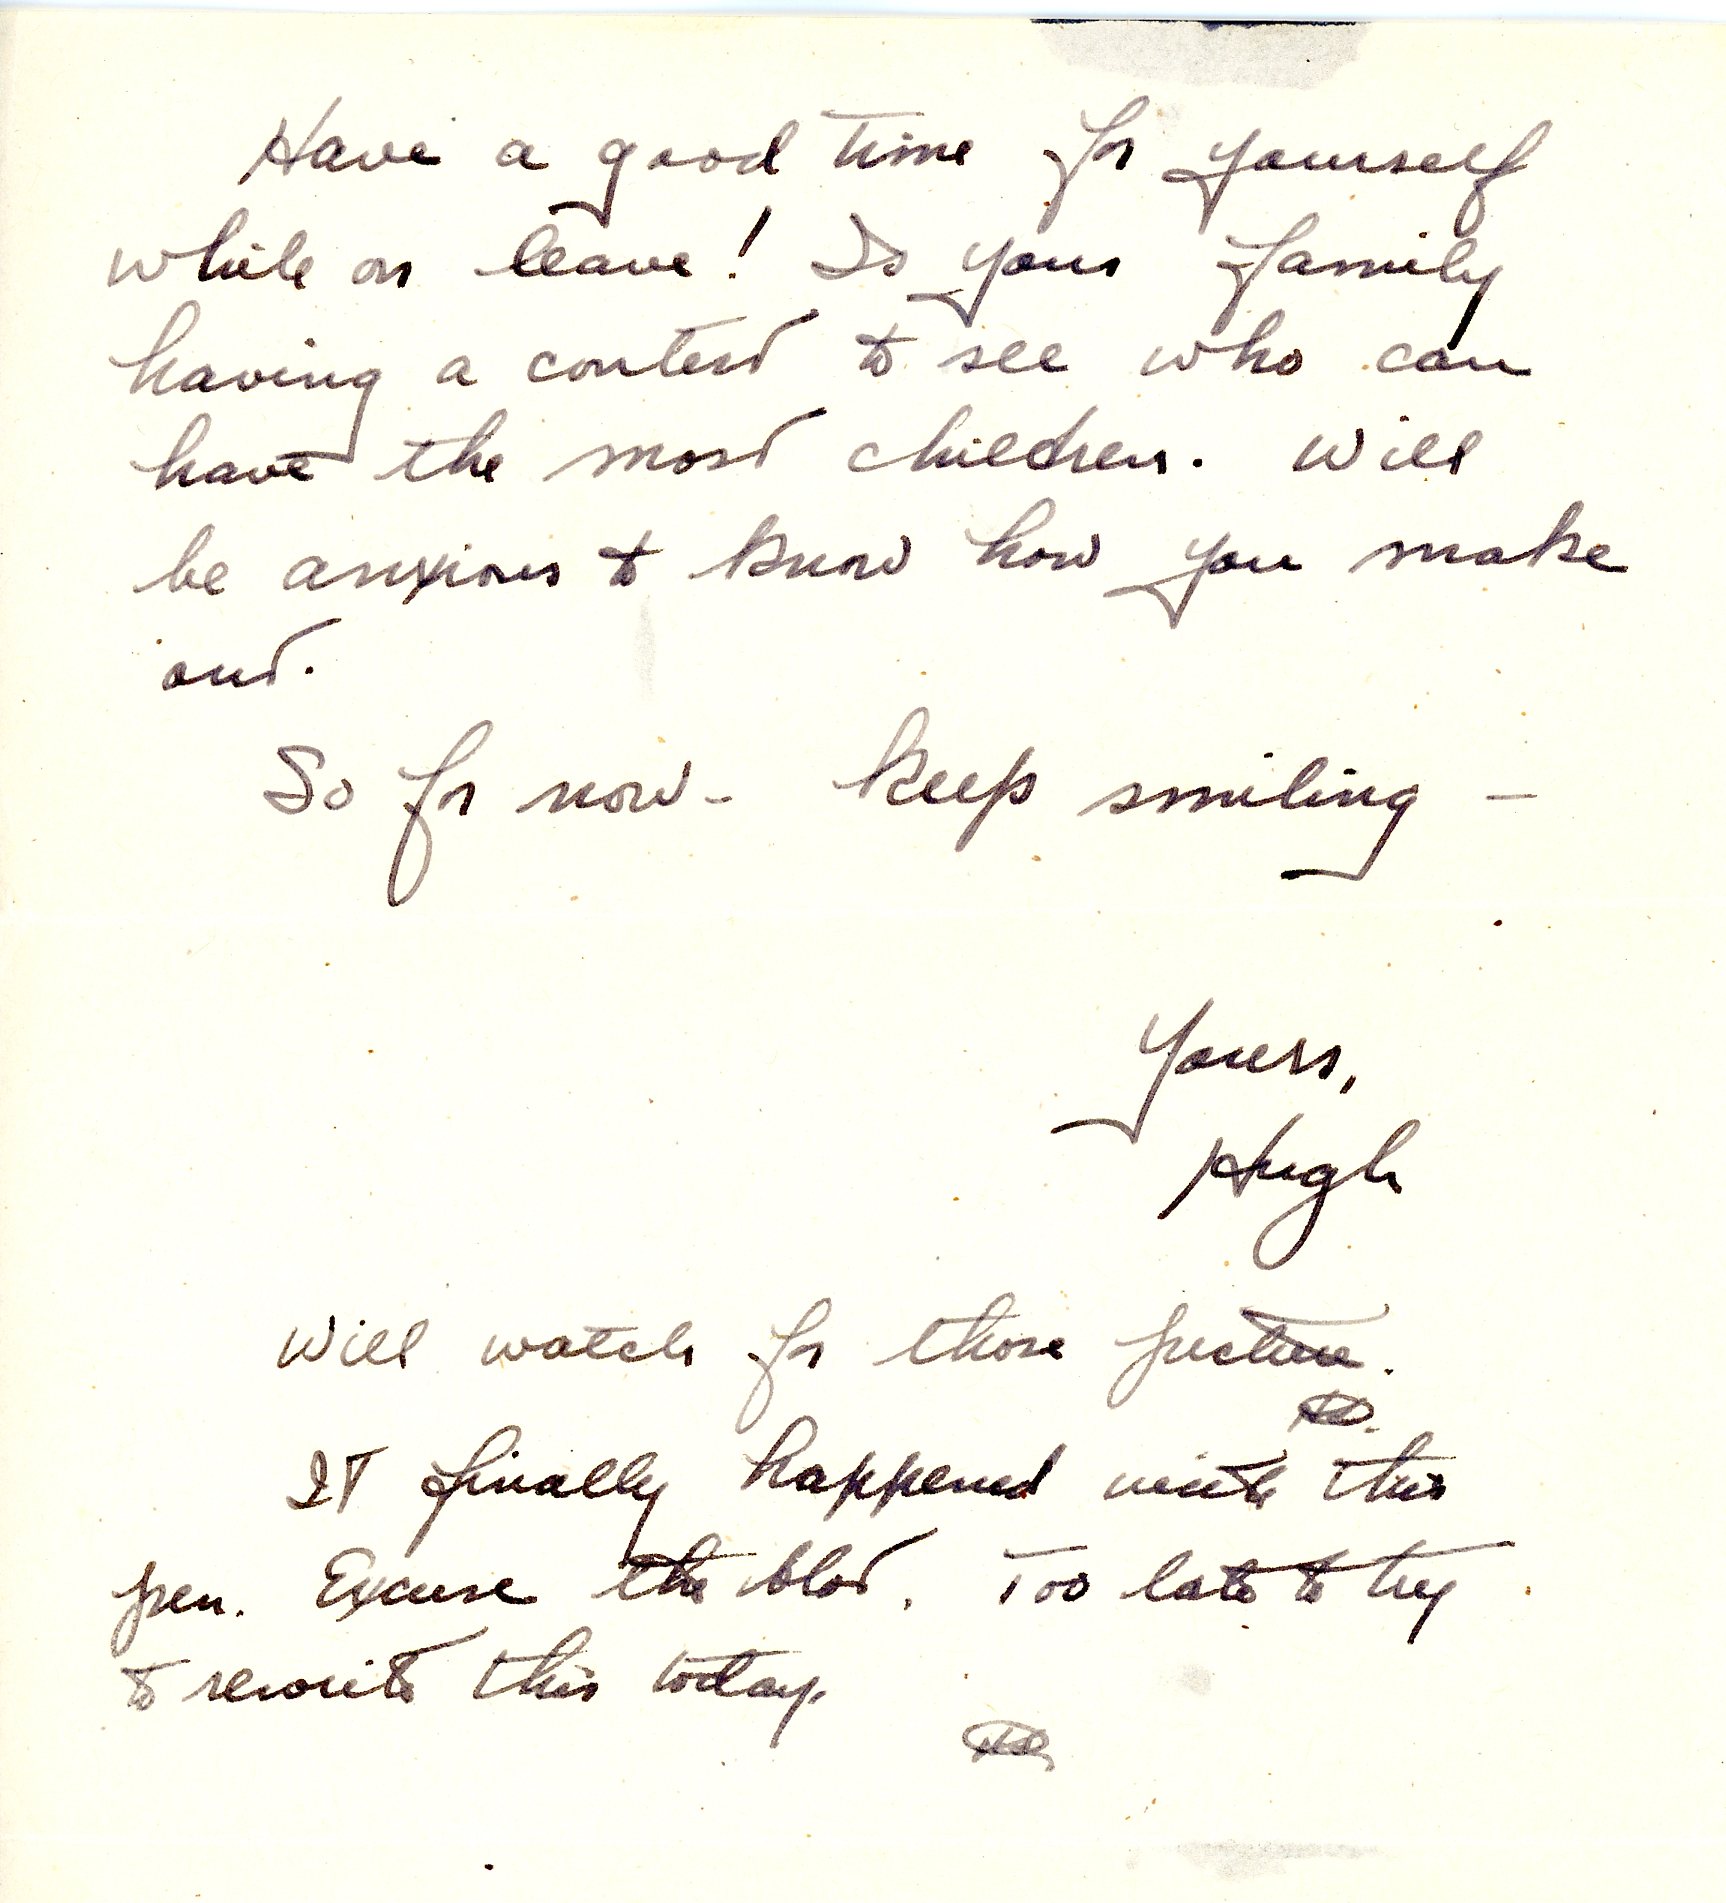 Have a good time for yourself
while on leave! Is your family
having a contest to see who can
have the most children. Will
be anxious to know how you make
out.
So for now - keep smiling -
Yours,
Hugh
Will watch for those picture.
It finally happened with this
pen. Excuse the blot. Too late to try
to rewrite this today.